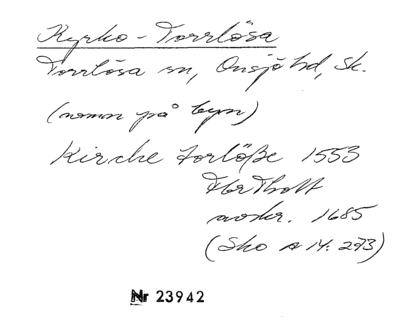 Kyrko-Torrlösa
Torrlösa sn, Onsjö hd, Sk.
(namn på byn)
Kirche torlösse 1553
FbrThott
avskr. 1685
(Sko A 14: 273)
Nr 23942